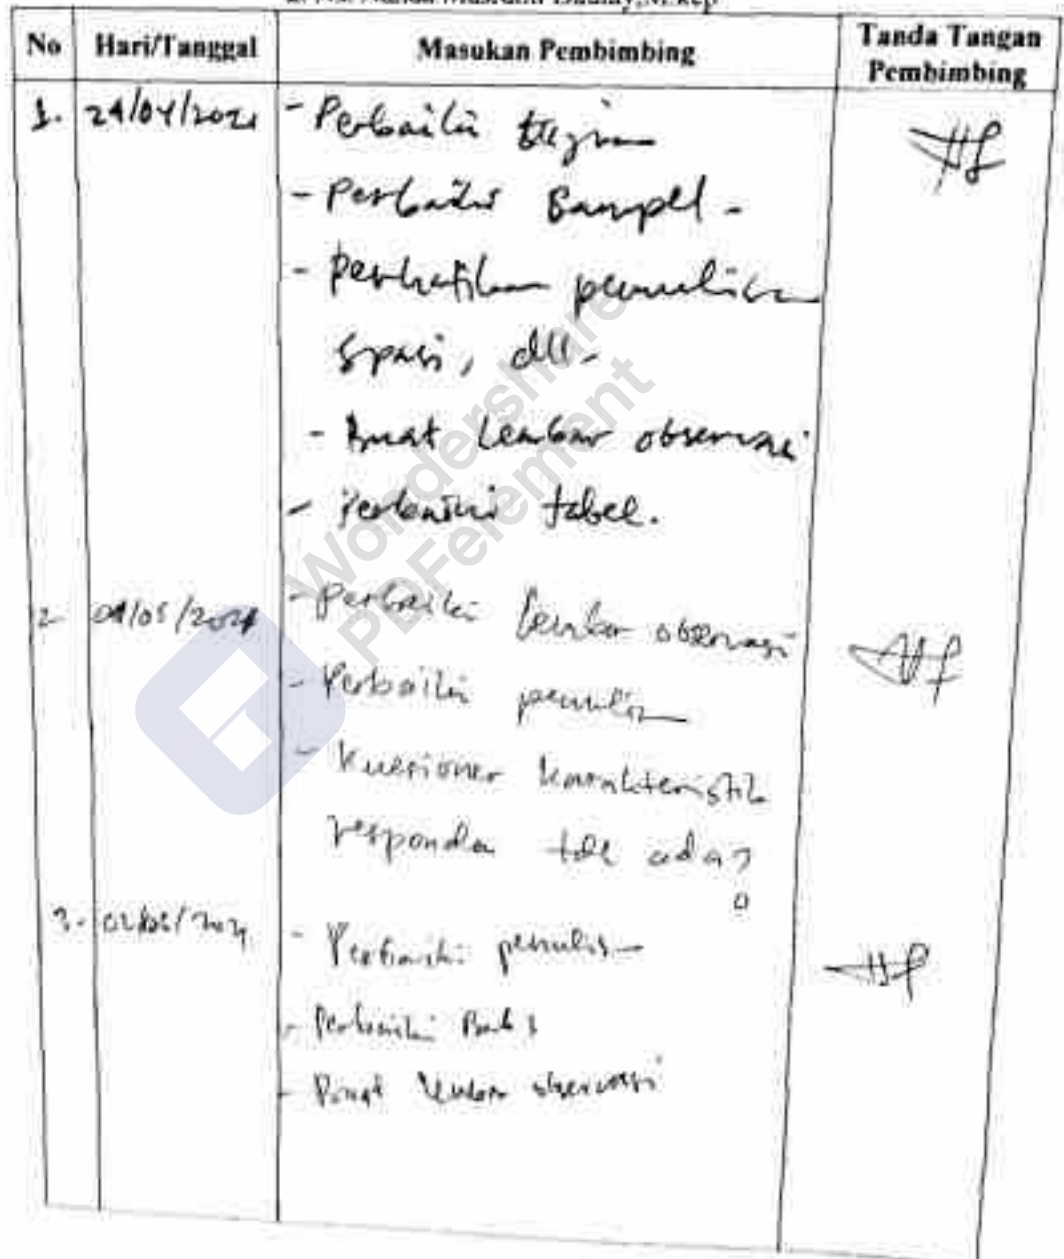 No Hari/Tanggal Masukan Pembimbing Tanda Tangan Pembimbing
1. 24/04/2024 - Perbaiki tujuan
- Perbaiki Sampel -
- Perhatikan penulisan
Spasi, dll -
- Buat Lembar observasi
- Perbaiki tabel.
2 /05/2024 - Perbaiki lembar observasi
- Perbaiki penulisan
- Kuesioner karakteristik
responden tdk ada?
3. - Perbaiki penulisan
- Perbaiki Bab 3
- Buat lembar observasi
Wondershare
PDFelement